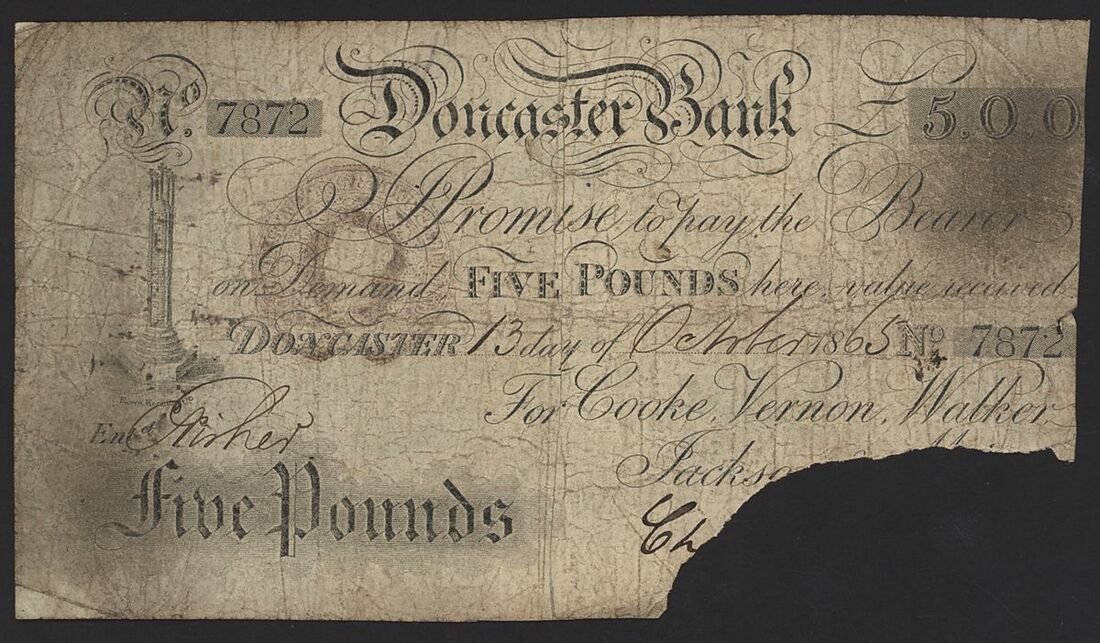 No. 7872 Doncaster Bank £5.0.0
I Promise to pay the Bearer
on Demand, FIVE POUNDS here, value received
DONCASTER 13 day of October 1865 No 7872
For Cooke, Vernon, Walker,
Entd
Jackso
Five Pounds
Ch